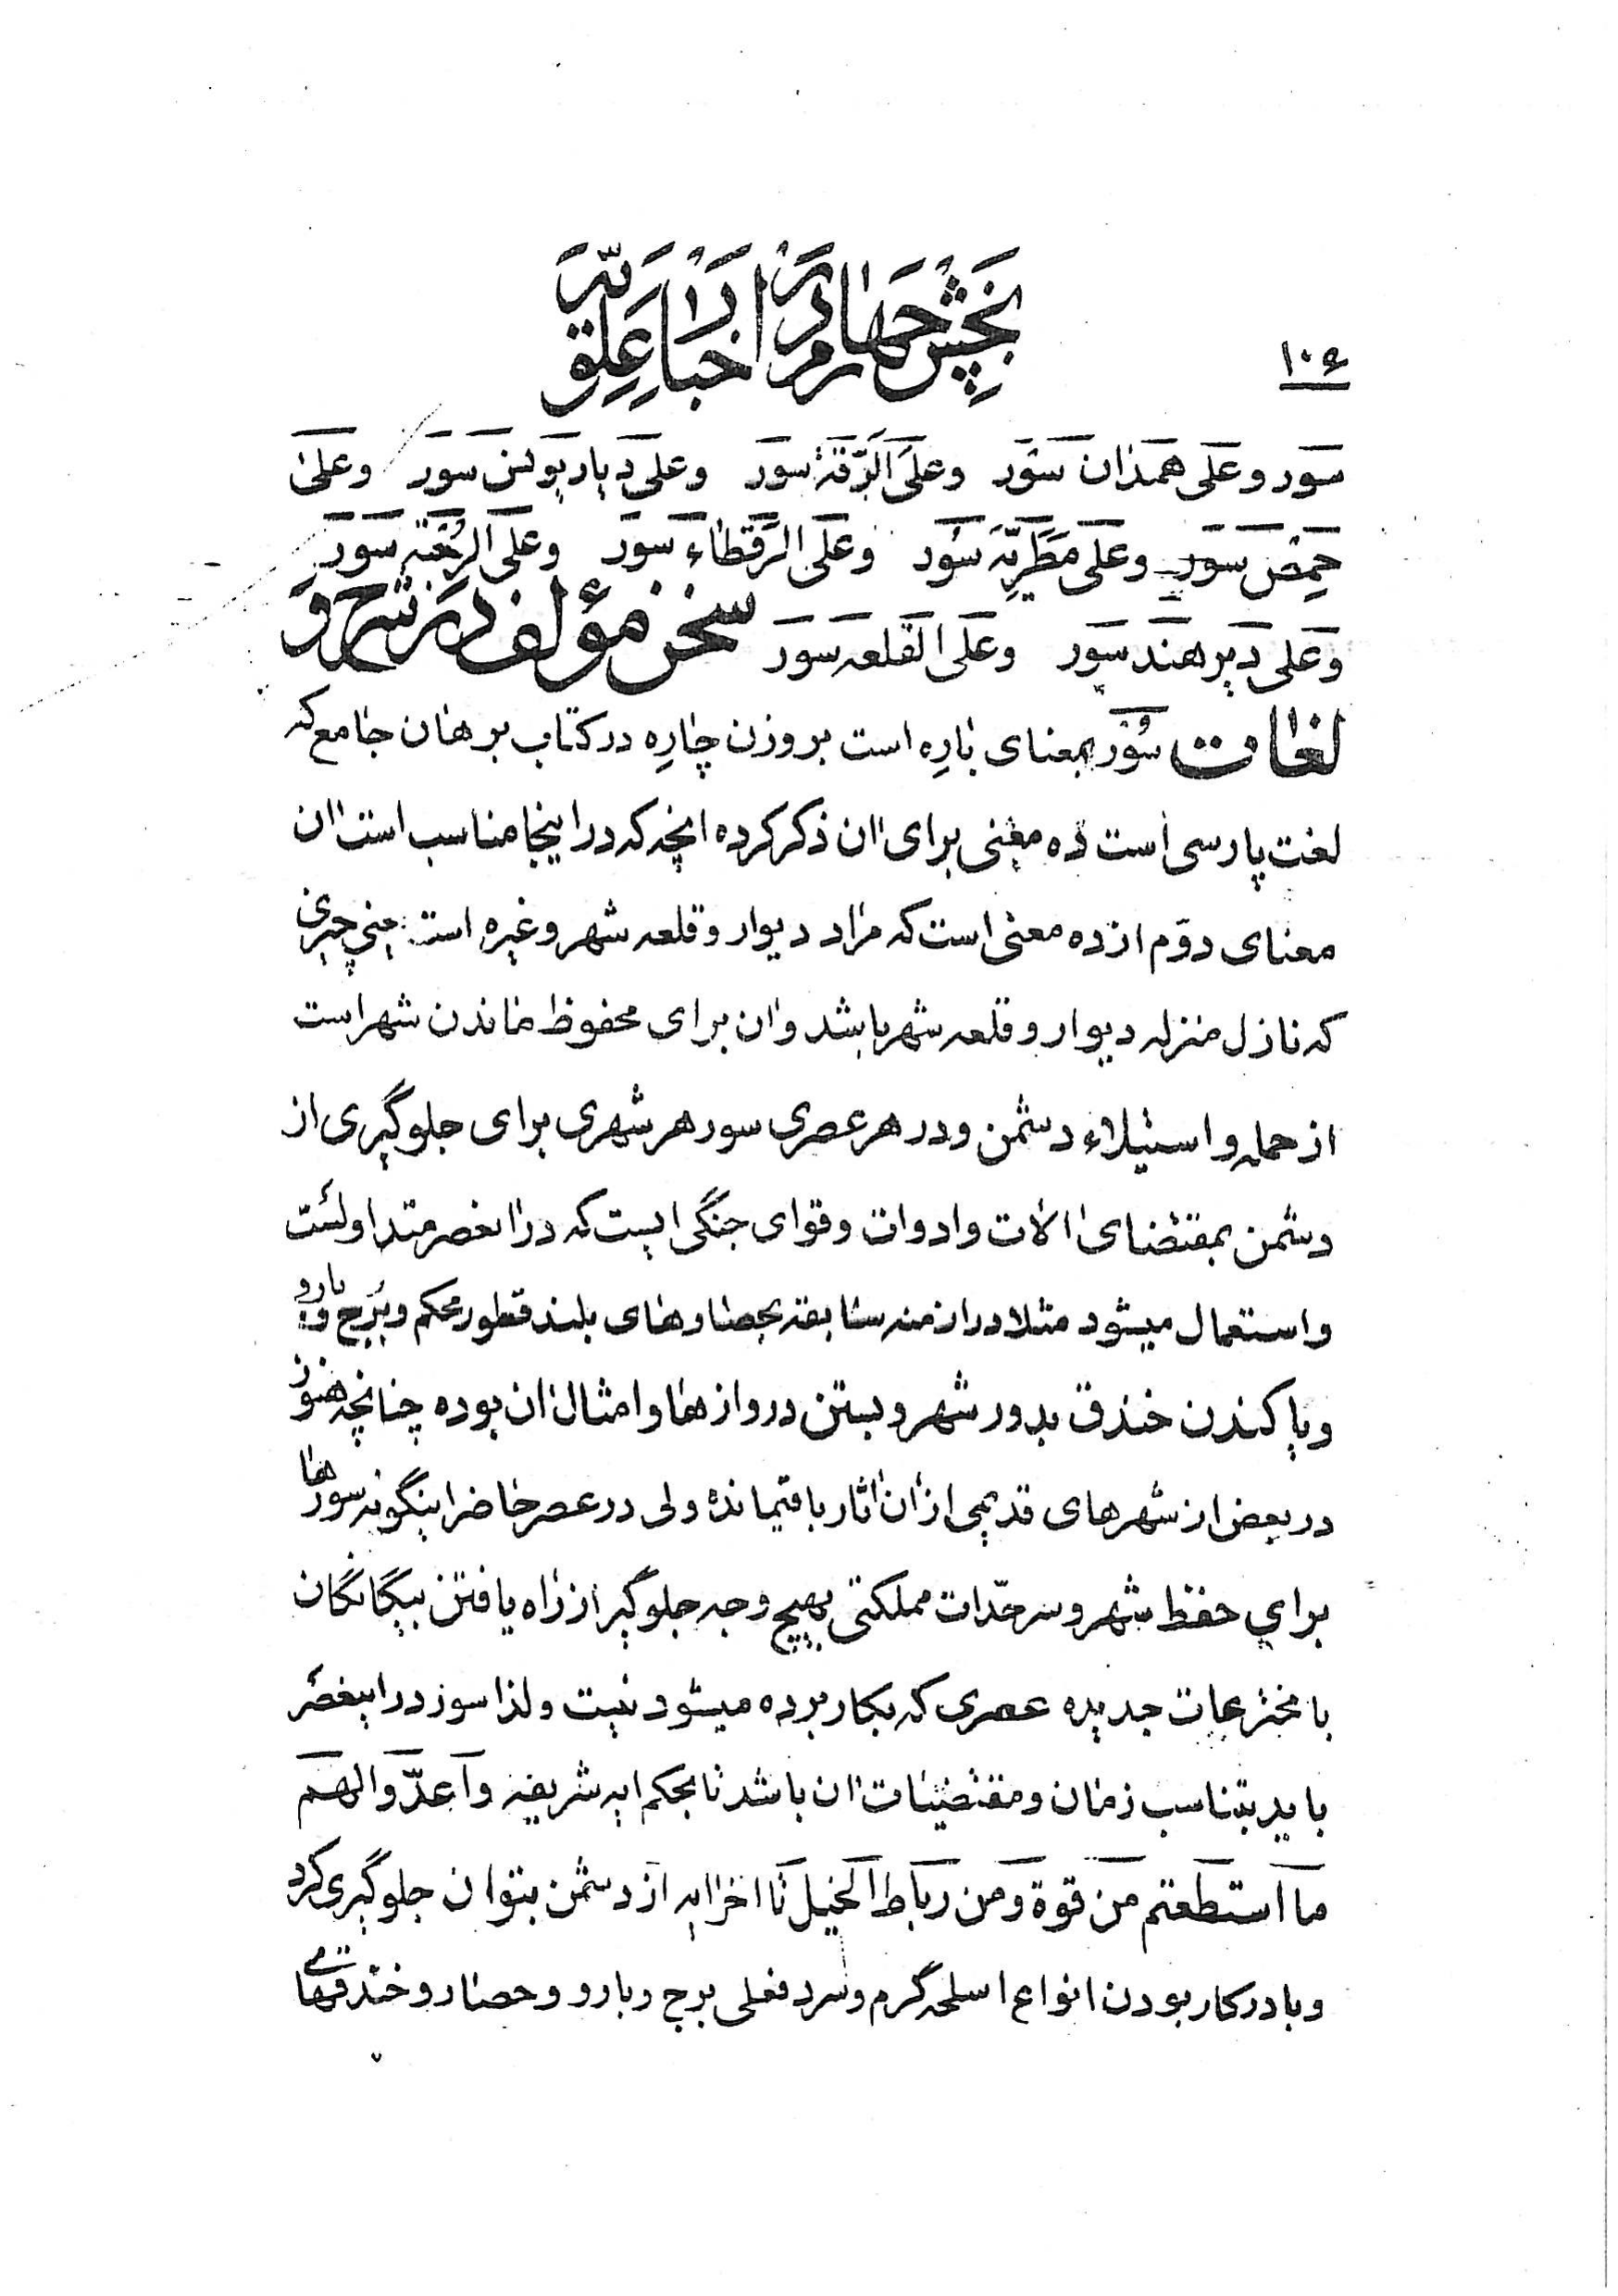 ۱۰۶
بخش چهارم در اخبار علویّه
سور و علی همدان سور وعلی الرّقة سور وعلی دیار یونس سور وعلی
حمص سور وعلی مطریّه سور وعلی الرقطاء سور وعلی الرحبة سور
وعلی دیر هند سور وعلی القلعه سور سخن مؤلف در شرح و
لغات سور بمعنای باره است بر وزن چاره در کتاب برهان جامع که
لغت پارسی است ده معنی برای ان ذکر کرده انچه که در اینجا مناسب است ان
معنای دوّم از ده معنی است که مراد دیوار و قلعه شهر و غیره است یعنی چیزی
که نازل منزله دیوار و قلعه شهر باشد و ان برای محفوظ ماندن شهر است
از حمله و استیلاء دشمن و در هر عصری سور هر شهری برای جلوگیری از
دشمن بمقتضای الات و ادوات و قوای جنگی ایست که در انعصر متداولست
و استعمال میشود مثلا در ازمنه سابقه بحصارهای بلند قطور محکم و برج و بارو
و با کندن خندق بدور شهر و بستن دروازه‌ها و امثال ان بوده چنانچه هنوز
در بعض از شهرهای قدیمی از ان اثار باقیمانده ولی در عصر حاضر اینگونه سورها
برای حفظ شهر و سرحدّات مملکتی بهیچ وجه جلوگیر از راه یافتن بیگانگان
با مخترعات جدیده عصری که بکار برده میشود نیست ولذا سور در اینعصر
باید بتناسب زمان و مقتضیات ان باشد تا بحکم ایه شریفه و اعدّوا لهم
ما استطعتم من قوة و من رباط الخیل تا اخر ایه از دشمن بتوان جلوگیری کرد
و با در کار بودن انواع اسلحه گرم و سرد فعلی برج و بارو و حصار و خندقهای